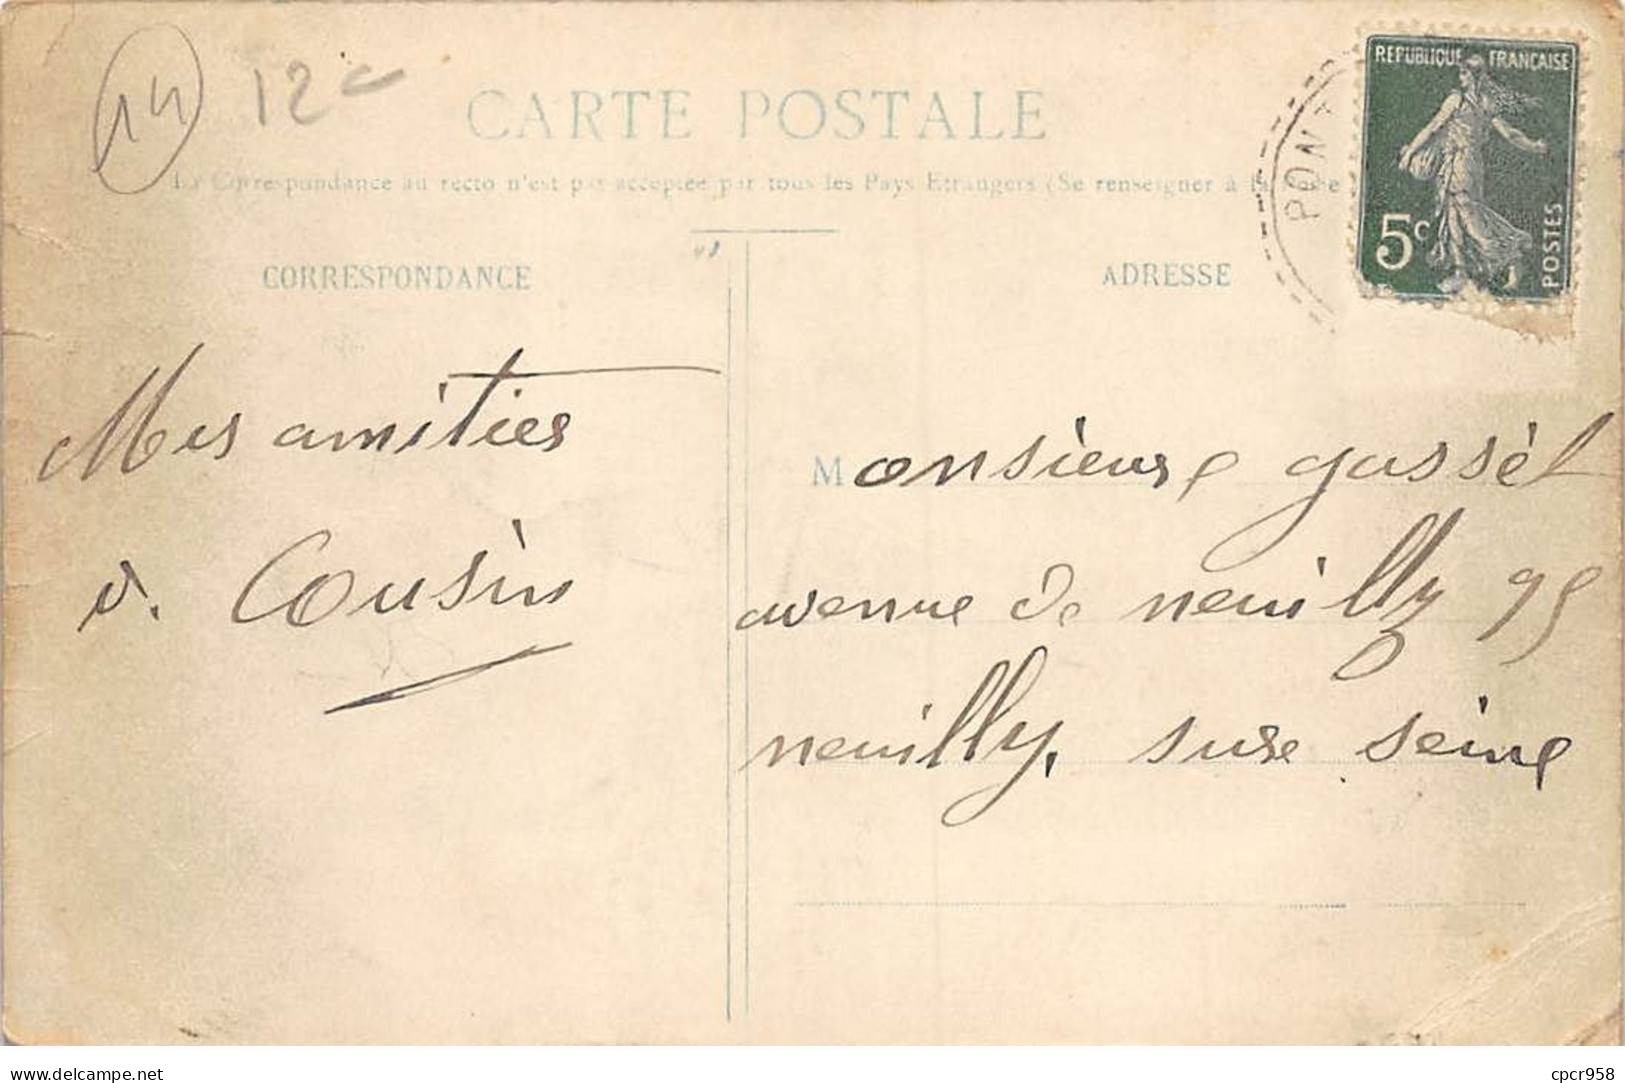 14
12c
CARTE POSTALE
La Correspondance au recto n'est pas acceptée par tous les Pays Etrangers (Se renseigner à la
PONT
REPUBLIQUE FRANÇAISE
5c
POSTES
CORRESPONDANCE
ADRESSE
Mes amities
v. Cousin
Monsieure gassèt
avenue de neuilly 95
neuilly, sure seine
delcampe.net
cpcr958